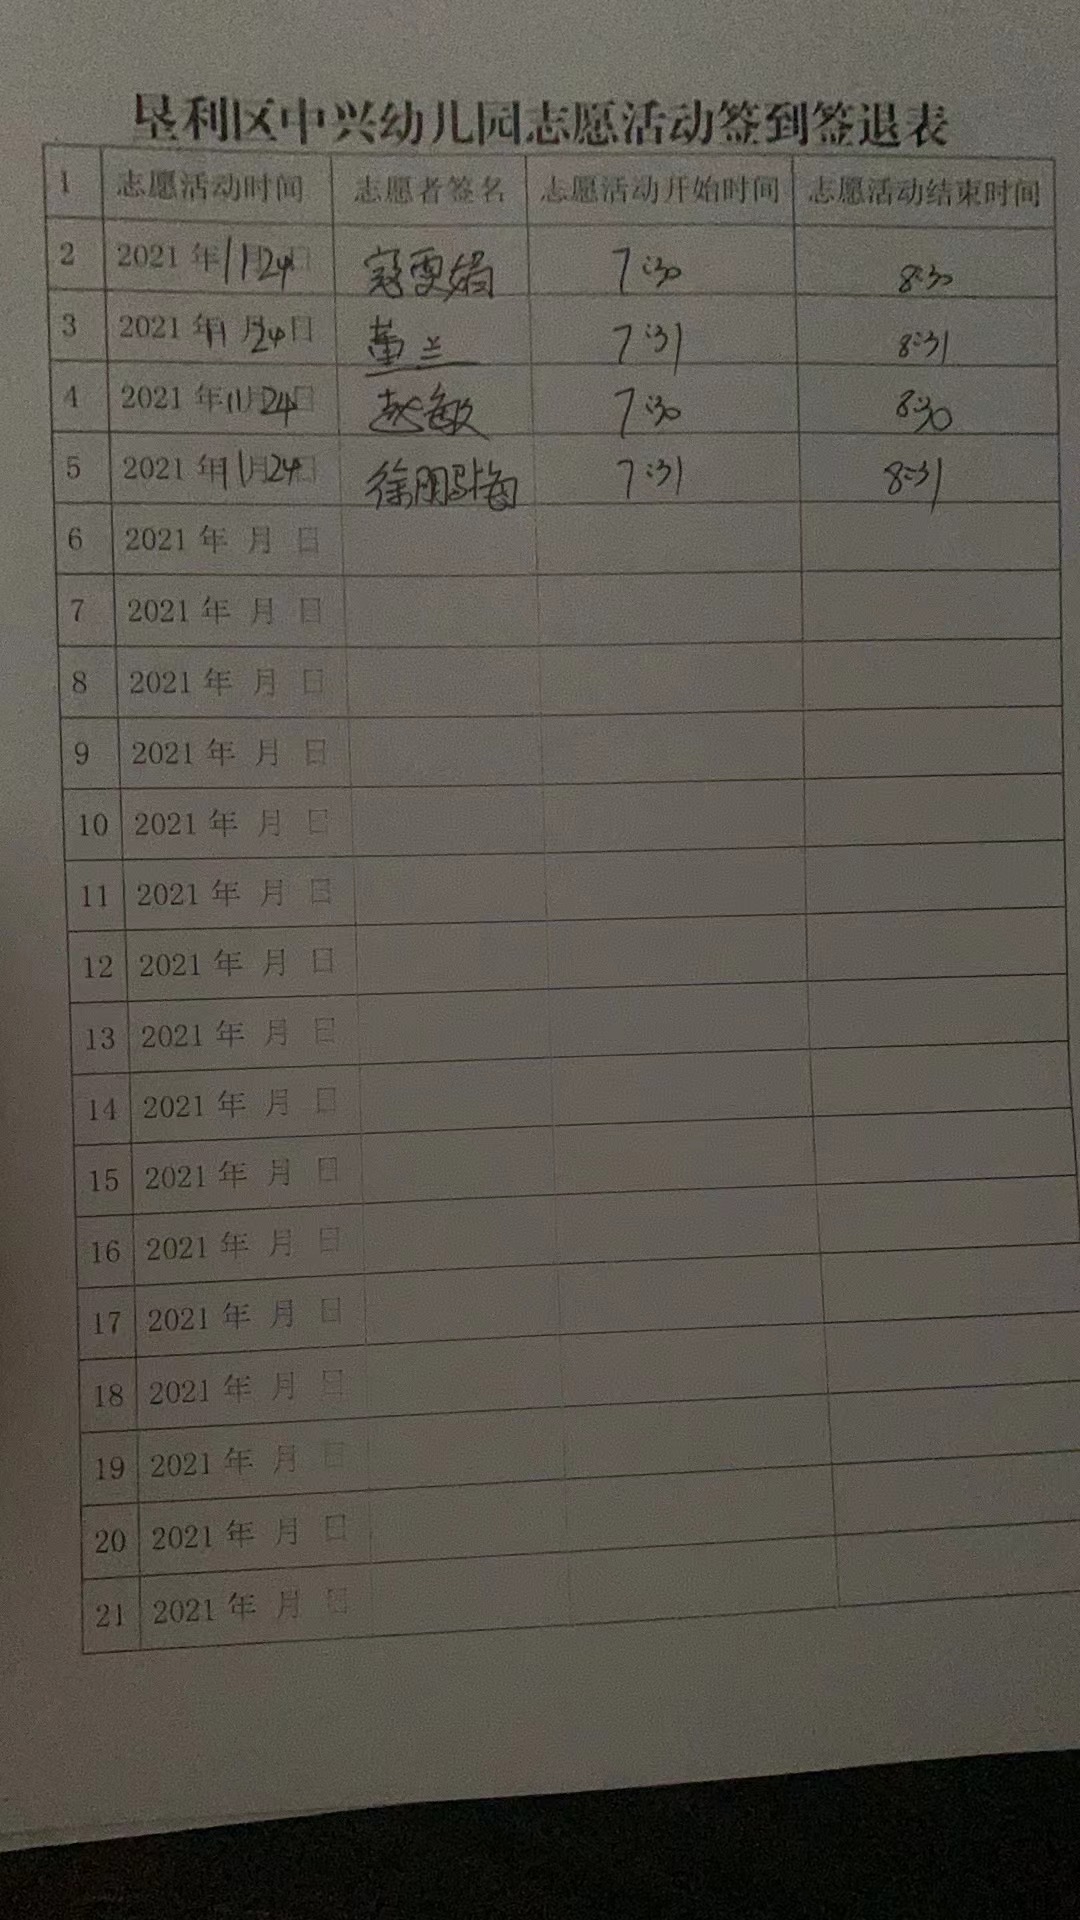 垦利区中兴幼儿园志愿活动签到签退表
1 志愿活动时间 志愿者签名 志愿活动开始时间 志愿活动结束时间
2 2021年11月24日 寇雯娟 7:30 8:30
3 2021年11月24日 董兰 7:31 8:31
4 2021年11月24日 赵敏 7:30 8:30
5 2021年11月24日 徐朋海 7:31 8:31
6 2021年 月 日
7 2021年 月 日
8 2021年 月 日
9 2021年 月 日
10 2021年 月 日
11 2021年 月 日
12 2021年 月 日
13 2021年 月 日
14 2021年 月 日
15 2021年 月 日
16 2021年 月 日
17 2021年 月 日
18 2021年 月 日
19 2021年 月 日
20 2021年 月 日
21 2021年 月 日